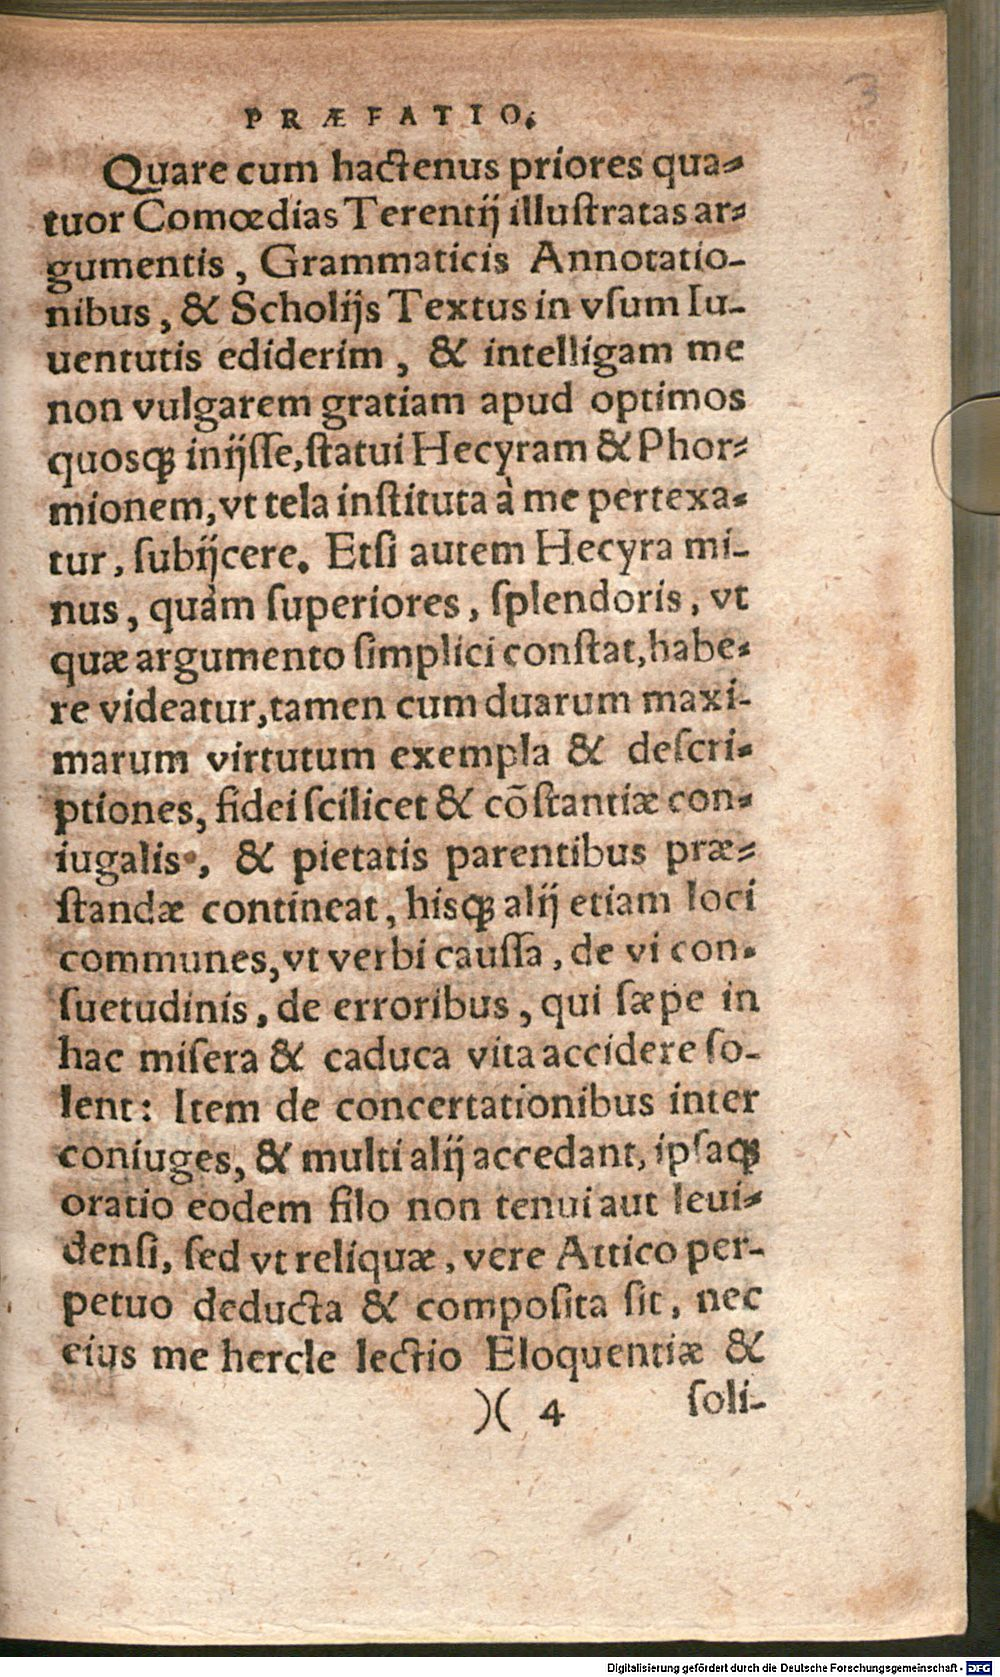 3
PRÆFATIO.
Quare cum hactenus priores qua-
tuor Comœdias Terentij illuſtratas ar-
gumentis, Grammaticis Annotatio-
nibus, & Scholijs Textus in vſum Iu-
uentutis ediderim, & intelligam me
non vulgarem gratiam apud optimos
quosq́ꝫ inijſſe, ſtatui Hecyram & Phor-
mionem, vt tela inſtituta à me pertexa-
tur, ſubijcere. Etſi autem Hecyra mi-
nus, quàm ſuperiores, ſplendoris, vt
quæ argumento ſimplici conſtat, habe-
re videatur, tamen cum duarum maxi-
marum virtutum exempla & deſcri-
ptiones, fidei ſcilicet & cõſtantiæ con-
iugalis, & pietatis parentibus præ-
ſtandæ contineat, hisq́ꝫ alij etiam loci
communes, vt verbi cauſſa, de vi con-
ſuetudinis, de erroribus, qui ſæpe in
hac miſera & caduca vita accidere ſo-
lent: Item de concertationibus inter
coniuges, & multi alij accedant, ipſaq́ꝫ
oratio eodem filo non tenui aut leui-
denſi, ſed vt reliquæ, vere Attico per-
petuo deducta & compoſita ſit, nec
eius me hercle lectio Eloquentiæ &
)( 4 ſoli-
Digitalisierung gefördert durch die Deutsche Forschungsgemeinschaft - DFG